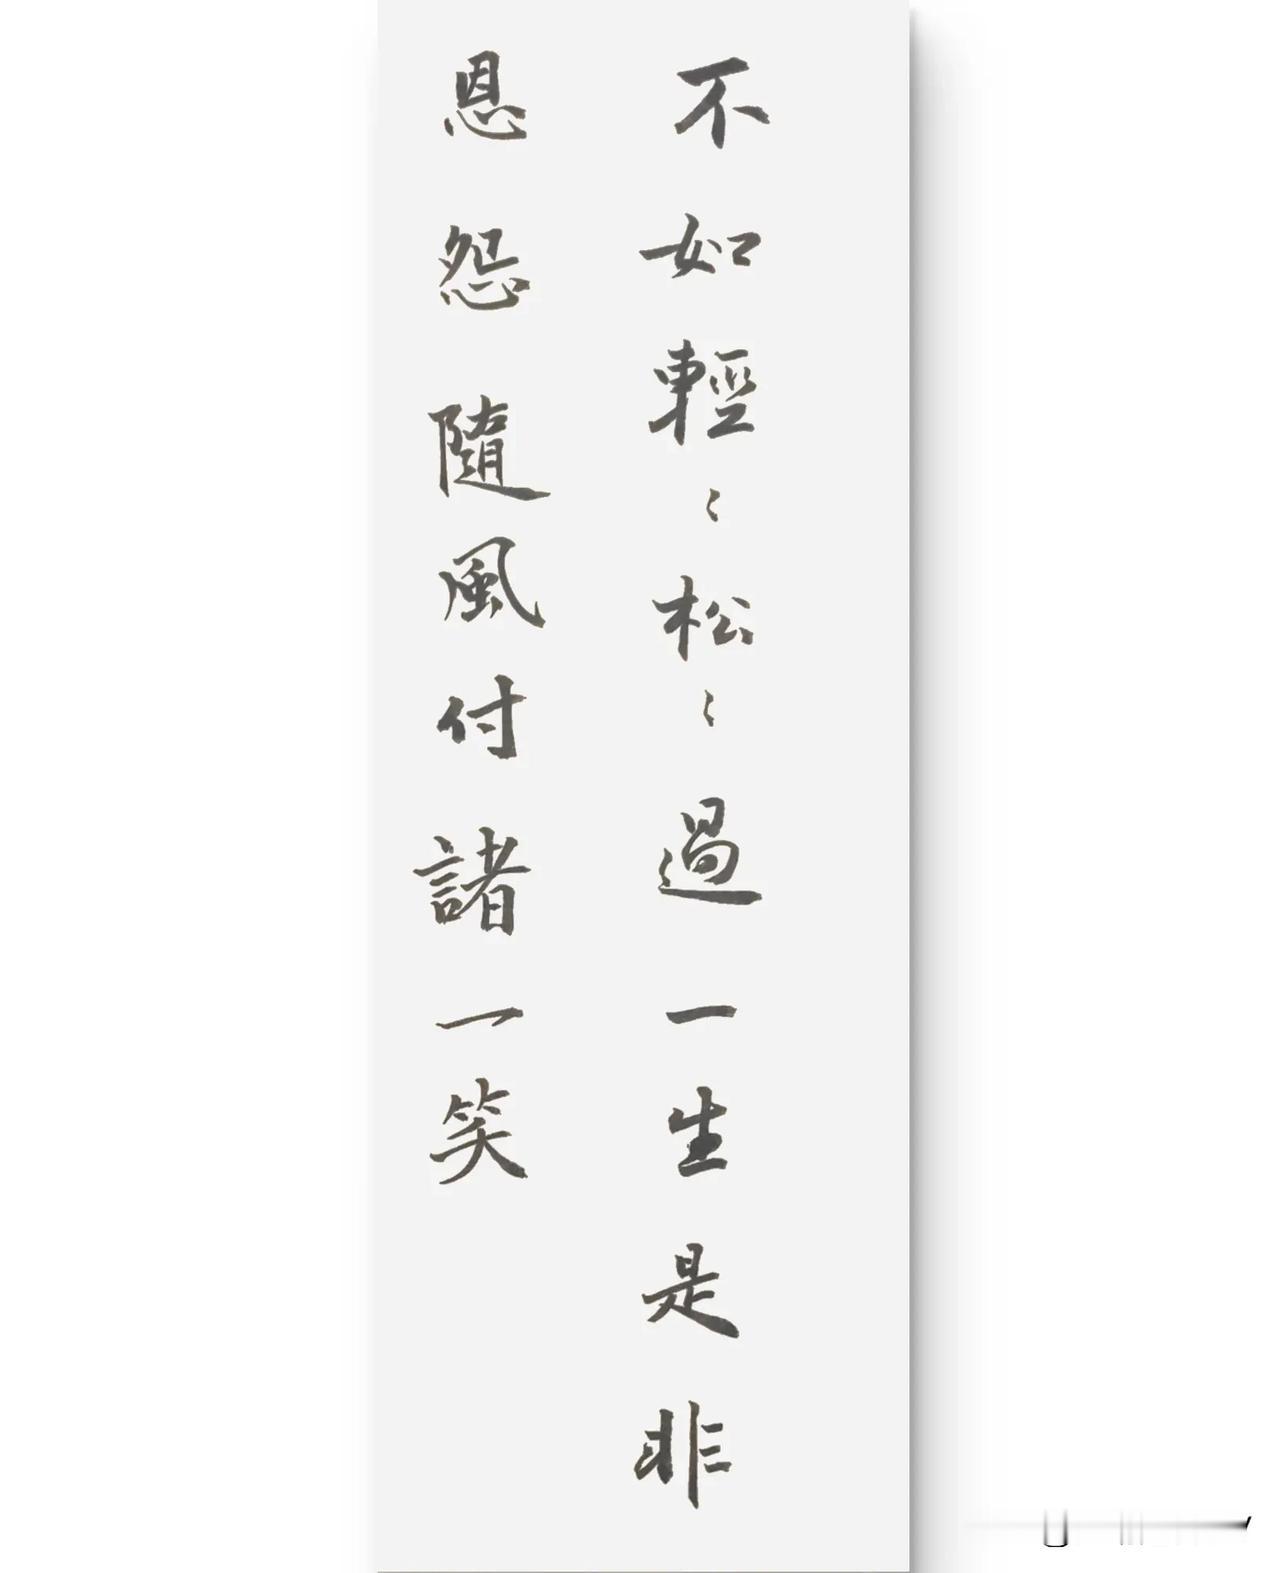 不如輕〻松〻過一生是非
恩怨隨風付諸一笑